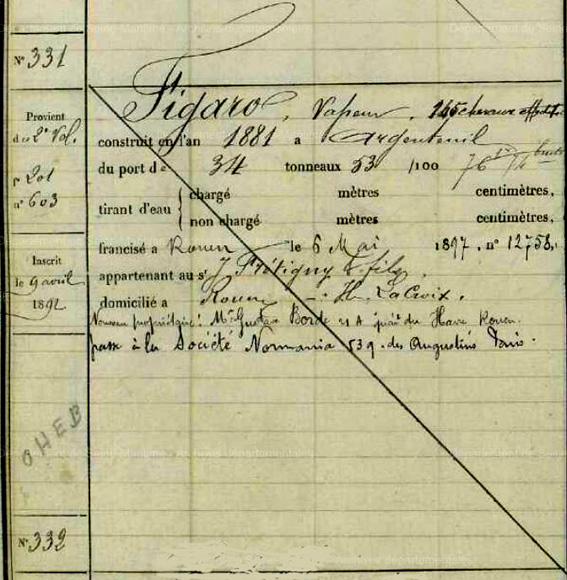 N° 331
Figaro, Vapeur, 145 chevaux effectifs
Provient
du 2e Vol.
construit en l'an 1881 a Argenteuil
du port de 34 tonneaux 53 /100 76 tx
201
n° 603
tirant d'eau { chargé mètres centimètres,
non chargé mètres centimètres,
Inscrit
le 9 avril
1892
francisé a Rouen le 6 Mai 1897, n° 12758,
appartenant au sr J Prétigny & fils,
domicilié a Rouen - H. LaCroix.
Nouveau propriétaire: Mr Gustav Borde 21 A quai du Havre Rouen.
passe à la Société Normania 53 q. des Augustins Paris.
OHEB
N° 332